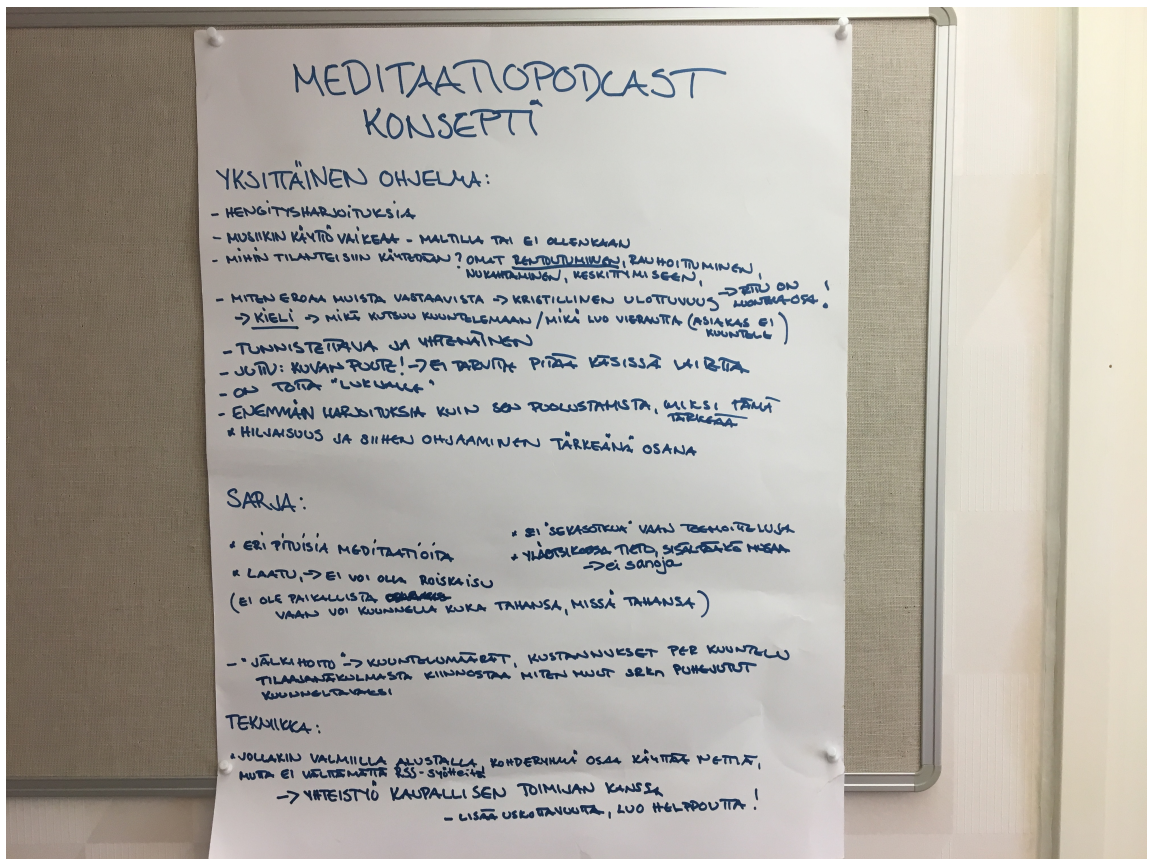 MEDITAATIOPODCAST
KONSEPTI
YKSITTÄINEN OHJELMA:
- HENGITYSHARJOITUKSIA
- MUSIIKIN KÄYTTÖ VAIKEAA - MALTILLA TAI EI OLLENKAAN
- MIHIN TILANTEISIIN KÄYTETÄÄN? OMAT RENTOUTUMINEN, RAUHOITTUMINEN,
NUKAHTAMINEN, KESKITTYMISEEN,
- MITEN EROAA MUISTA VASTAAVISTA → KRISTILLINEN ULOTTUVUUS → ETTÄ ON LUONTEVA OSA!
→ KIELI → MIKÄ KUTSUU KUUNTELEMAAN / MIKÄ LUO VIERAUTTA (ASIAKAS EI KUUNTELE)
- TUNNISTETTAVA JA YHTENÄINEN
- JUTTU: KUVAN PUUTE! → EI TARVITSE PITÄÄ KÄSISSÄ LAITETTA
- ON TOTTA "LUKIJALLE"
- ENEMMÄN HARJOITUKSIA KUIN SEN PUOLUSTAMISTA, MIKSI TÄMÄ
TÄRKEÄÄ
* HILJAISUUS JA SIIHEN OHJAAMINEN TÄRKEÄNÄ OSANA
SARJA:
* ERI PITUISIA MEDITAATIOITA
* LAATU, → EI VOI OLLA ROISKAISU
(EI OLE PAIKALLISTA
VAAN VOI KUUNNELLA KUKA TAHANSA, MISSÄ TAHANSA)
* EI "SEKASOTKUA" VAAN TEEMOITTELUJA
* YLÄOTSIKOSSA TIETO, SISÄLTÄÄKÖ MUSAA
→ ei sanoja
- "JÄLKIHOITO" → KUUNTELUMÄÄRÄT, KUSTANNUKSET PER KUUNTELU
TILAAJANÄKULMASTA KIINNOSTAA MITEN MUUT SRKn PUHEJUTUT
KUUNNELTAVAKSI
TEKNIIKKA:
* JOLLAKIN VALMIILLA ALUSTALLA, KOHDERYHMÄ OSAA KÄYTTÄÄ NETTIÄ,
MUTTA EI VÄLTTÄMÄTTÄ RSS-SYÖTTEITÄ
→ YHTEISTYÖ KAUPALLISEN TOIMIJAN KANSSA
- LISÄÄ USKOTTAVUUTTA, LUO HELPPOUTTA!